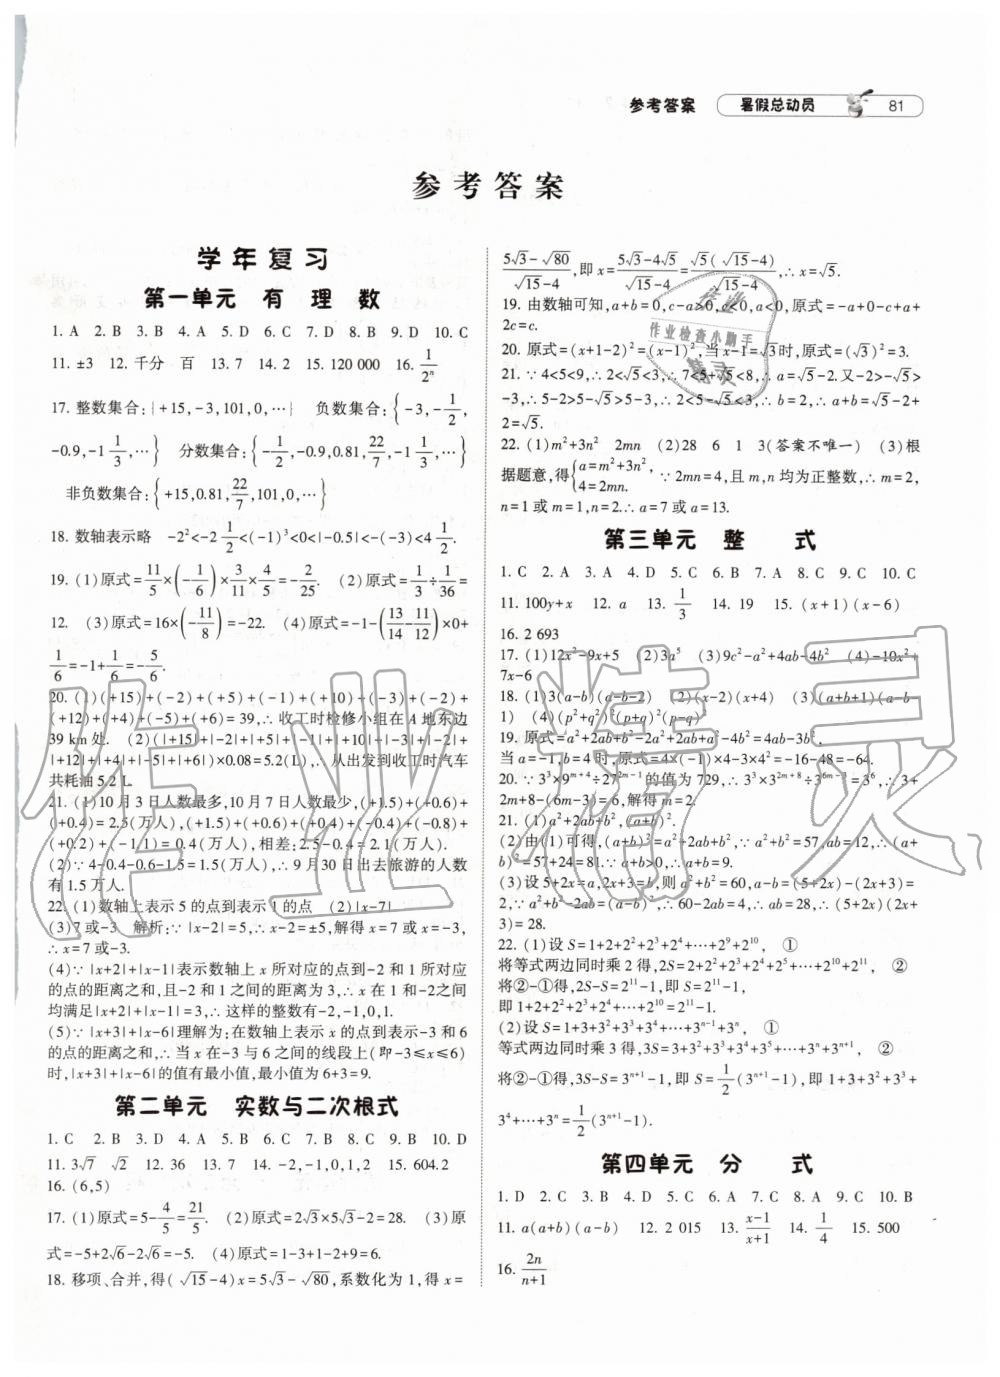 参考答案 暑假总动员 81
参考答案
学年复习
第一单元 有理数
1. A 2. B 3. B 4. A 5. D 6. C 7. D 8. B 9. D 10. C
11. ±3 12. 千分 百 13. 7 14. 2 15. 120 000 16. 1/2ⁿ
17. 整数集合:{+15,-3,101,0,…} 负数集合:{-3,-1/2,
-0.9,-1 1/3,…} 分数集合:{-1/2,-0.9,0.81,22/7,-1 1/3,…}
非负数集合:{+15,0.81,22/7,101,0,…}
18. 数轴表示略 -2²<-2 1/2<(-1)³<0<|-0.5|<-(-3)<4 1/2.
19. (1)原式=11/5×(-1/6)×3/11×4/5=-2/25. (2)原式=1/3÷1/36=
12. (3)原式=16×(-11/8)=-22. (4)原式=-1-(13/14-11/12)×0+
1/6=-1+1/6=-5/6.
20. (1)(+15)+(-2)+(+5)+(-1)+(+10)+(-3)+(-2)+
(+12)+(+4)+(-5)+(+6)=39,∴收工时检修小组在A地东边
39 km处. (2)(|+15|+|-2|+|+5|+|-1|+|+10|+|-3|+|-2|+
|+12|+|+4|+|-5|+|+6|)×0.08=5.2(L),∴从出发到收工时汽车
共耗油5.2 L.
21. (1)10月3日人数最多,10月7日人数最少,(+1.5)+(+0.6)+
(+0.4)=2.5(万人),(+1.5)+(+0.6)+(+0.4)+(-0.4)+(-0.8)+
(+0.2)+(-1.1)=0.4(万人),相差:2.5-0.4=2.1(万人).
(2)∵4-0.4-0.6-1.5=1.5(万人),∴9月30日出去旅游的人数
有1.5万人.
22. (1)数轴上表示5的点到表示1的点 (2)|x-7|
(3)7或-3 解析:∵|x-2|=5,∴x-2=±5,解得x=7或x=-3,
∴x=7或-3.
(4)∵|x+2|+|x-1|表示数轴上x所对应的点到-2和1所对应
的点的距离之和,且-2和1之间的距离为3,∴x在-2和1之间
均满足|x+2|+|x-1|=3,∴这样的整数有-2,-1,0,1.
(5)∵|x+3|+|x-6|理解为:在数轴上表示x的点到表示-3和6
的点的距离之和,∴当x在-3与6之间的线段上(即-3≤x≤6)
时,|x+3|+|x-6|的值有最小值,最小值为6+3=9.
第二单元 实数与二次根式
1. C 2. B 3. D 4. A 5. D 6. B 7. B 8. C 9. B 10. D
11. 3√7 √2 12. 36 13. 7 14. -1,0,1,2 15. 604.2
16. (6,5)
17. (1)原式=5-4/5=21/5. (2)原式=2√3×5√3-2=28. (3)原
式=-5+2√6-2√6=-5. (4)原式=1-3+1-2+9=6.
18. 移项、合并,得(√15-4)x=5√3-√80,系数化为1,得x=
(5√3-√80)/(√15-4),即x=(5√3-4√5)/(√15-4)=√5(√15-4)/(√15-4),∴x=√5.
19. 由数轴可知,a+b=0,c-a>0,c<0,a<0,原式=-a+0-c+a+
2c=c.
20. 原式=(x+1-2)²=(x-1)²,当x-1=√3时,原式=(√3)²=3.
21. ∵4<5<9,∴2<√5<3,∴7<5+√5<8,∴a=√5-2.又-2>-√5>
-3,∴5-2>5-√5>5-3,∴2<5-√5<3,∴b=2,∴a+b=√5-2+
2=√5.
22. (1)m²+3n² 2mn (2)28 6 1 3(答案不唯一) (3)根
据题意,得{a=m²+3n²,4=2mn.∵2mn=4,且m,n均为正整数,∴m=2,
n=1或m=1,n=2.∴a=7或a=13.
第三单元 整式
1. C 2. A 3. A 4. D 5. C 6. B 7. A 8. C 9. C 10. C
11. 100y+x 12. a 13. 1/3 14. 19 15. (x+1)(x-6)
16. 2 693
17. (1)12x²-9x+5 (2)3a⁵ (3)9c²-a²+4ab-4b² (4)-10x²+
7x-6
18. (1)3(a-b)(a-b-2) (2)(x-2)(x+4) (3)(a+b+1)(a-b-
1) (4)(p²+q²)²(p+q)²(p-q)²
19. 原式=a²+2ab+b²-2a²+2ab+a²-4b²=4ab-3b².
当a=-1,b=4时,原式=4×(-1)×4-3×4²=-16-48=-64.
20. ∵3³×9ᵐ⁺⁴÷27²ᵐ⁻¹的值为729,∴3³×3²ᵐ⁺⁸÷3⁶ᵐ⁻³=3⁶,∴3+
2m+8-(6m-3)=6,解得m=2.
21. (1)a²+2ab+b²,(a+b)².
(2)由(1)可得,(a+b)²=a²+2ab+b²,∵a²+b²=57,ab=12,∴(a+
b)²=57+24=81.∵a+b>0,∴a+b=9.
(3)设5+2x=a,2x+3=b,则a²+b²=60,a-b=(5+2x)-(2x+3)=
2,∵a²+b²-2ab=(a-b)²,∴60-2ab=4,∴ab=28,∴(5+2x)(2x+
3)=28.
22. (1)设S=1+2+2²+2³+2⁴+…+2⁹+2¹⁰, ①
将等式两边同时乘2得,2S=2+2²+2³+2⁴+2⁵+…+2¹⁰+2¹¹, ②
将②-①得,2S-S=2¹¹-1,即S=2¹¹-1,
即1+2+2²+2³+2⁴+…+2¹⁰=2¹¹-1.
(2)设S=1+3+3²+3³+3⁴+…+3ⁿ⁻¹+3ⁿ, ①
等式两边同时乘3得,3S=3+3²+3³+3⁴+3⁵+…+3ⁿ+3ⁿ⁺¹, ②
将②-①得,3S-S=3ⁿ⁺¹-1,即S=1/2(3ⁿ⁺¹-1),即1+3+3²+3³+
3⁴+…+3ⁿ=1/2(3ⁿ⁺¹-1).
第四单元 分式
1. D 2. C 3. C 4. B 5. C 6. A 7. C 8. A 9. C 10. B
11. a(a+b)(a-b) 12. 2 015 13. (x-1)/(x+1) 14. 1/4 15. 500
16. 2n/(n+1)
作业
作业检查小助手
精灵
作业精灵